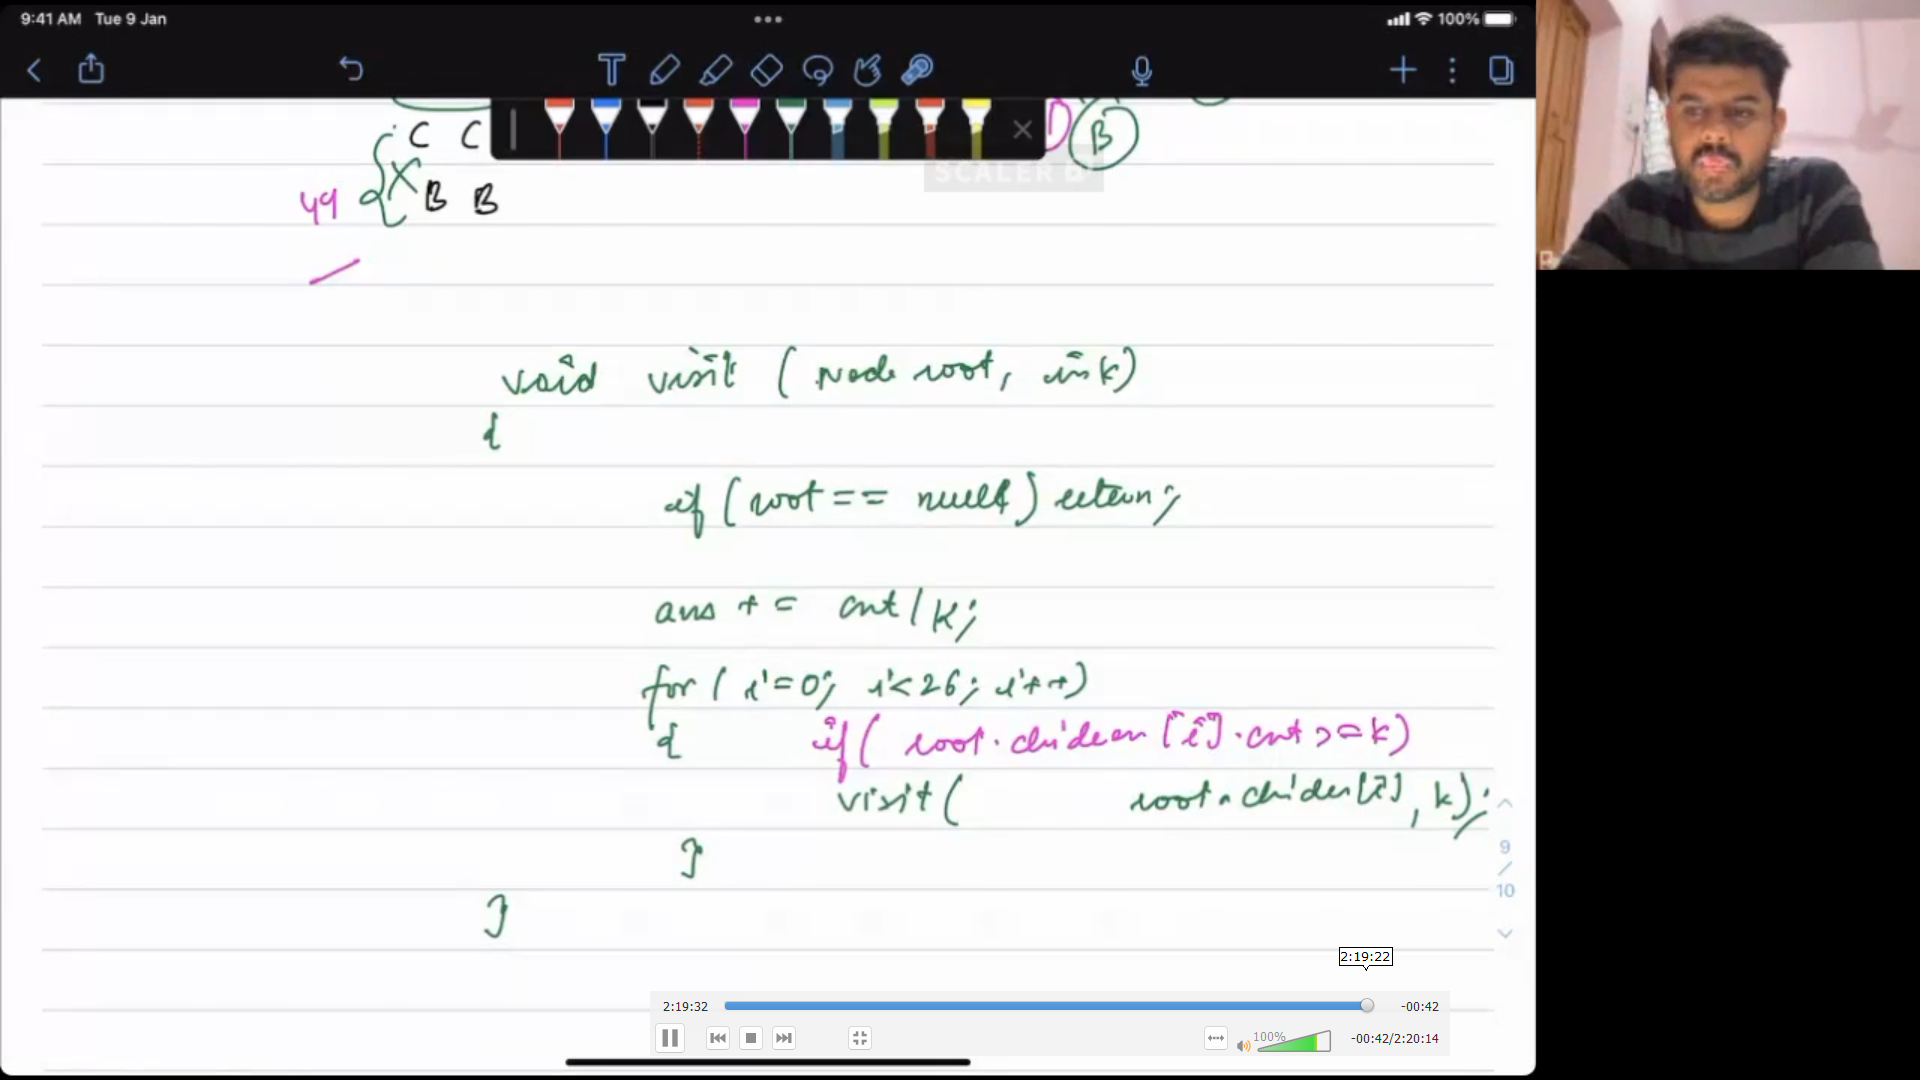 9:41 AM Tue 9 Jan
100%
T
C C
D B
SCALER B
49 X B B
void visit ( Node root, in k)
{
if ( root == null ) return;
ans += cnt / k;
for ( i=0; i<26; i++)
{ if ( root.children [i].cnt >= k)
visit ( root.children[i], k);
}
}
9
/
10
2:19:22
2:19:32
-00:42
100%
-00:42/2:20:14